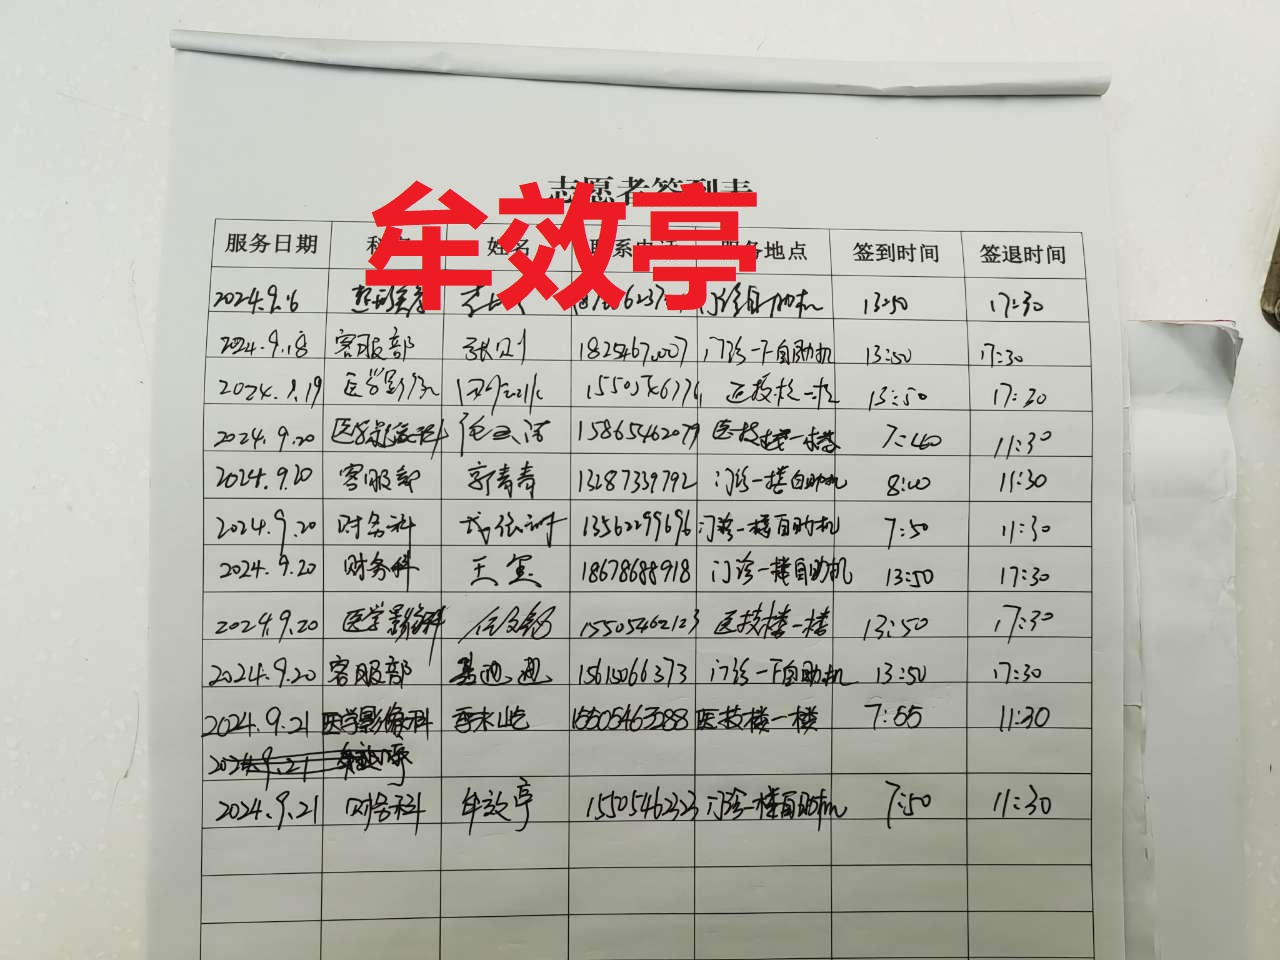 志愿者签到表
牟效亭
服务日期 姓名 联系电话 服务地点 签到时间 签退时间
2024.9.6 门诊自助机 13:50 17:30
2024.9.18 客服部 1825467007 门诊一下自助机 13:50 17:30
2024.9.19 医学影像 医技楼一楼 13:50 17:30
2024.9.20 医学影像科 15865462079 医技楼一楼 7:40 11:30
2024.9.20 客服部 郭青青 13287339792 门诊一楼自助机 8:00 11:30
2024.9.20 财务科 13562299696 门诊一楼自助机 7:50 11:30
2024.9.20 财务科 王宝 18678688918 门诊一楼自助机 13:50 17:30
2024.9.20 医学影像科 15505462123 医技楼一楼 13:50 17:30
2024.9.20 客服部 门诊一下自助机 13:50 17:30
2024.9.21 医学影像科 15505463588 医技楼一楼 7:55 11:30
2024.9.21
2024.9.21 财务科 牟效亭 15505462323 门诊一楼自助机 7:50 11:30